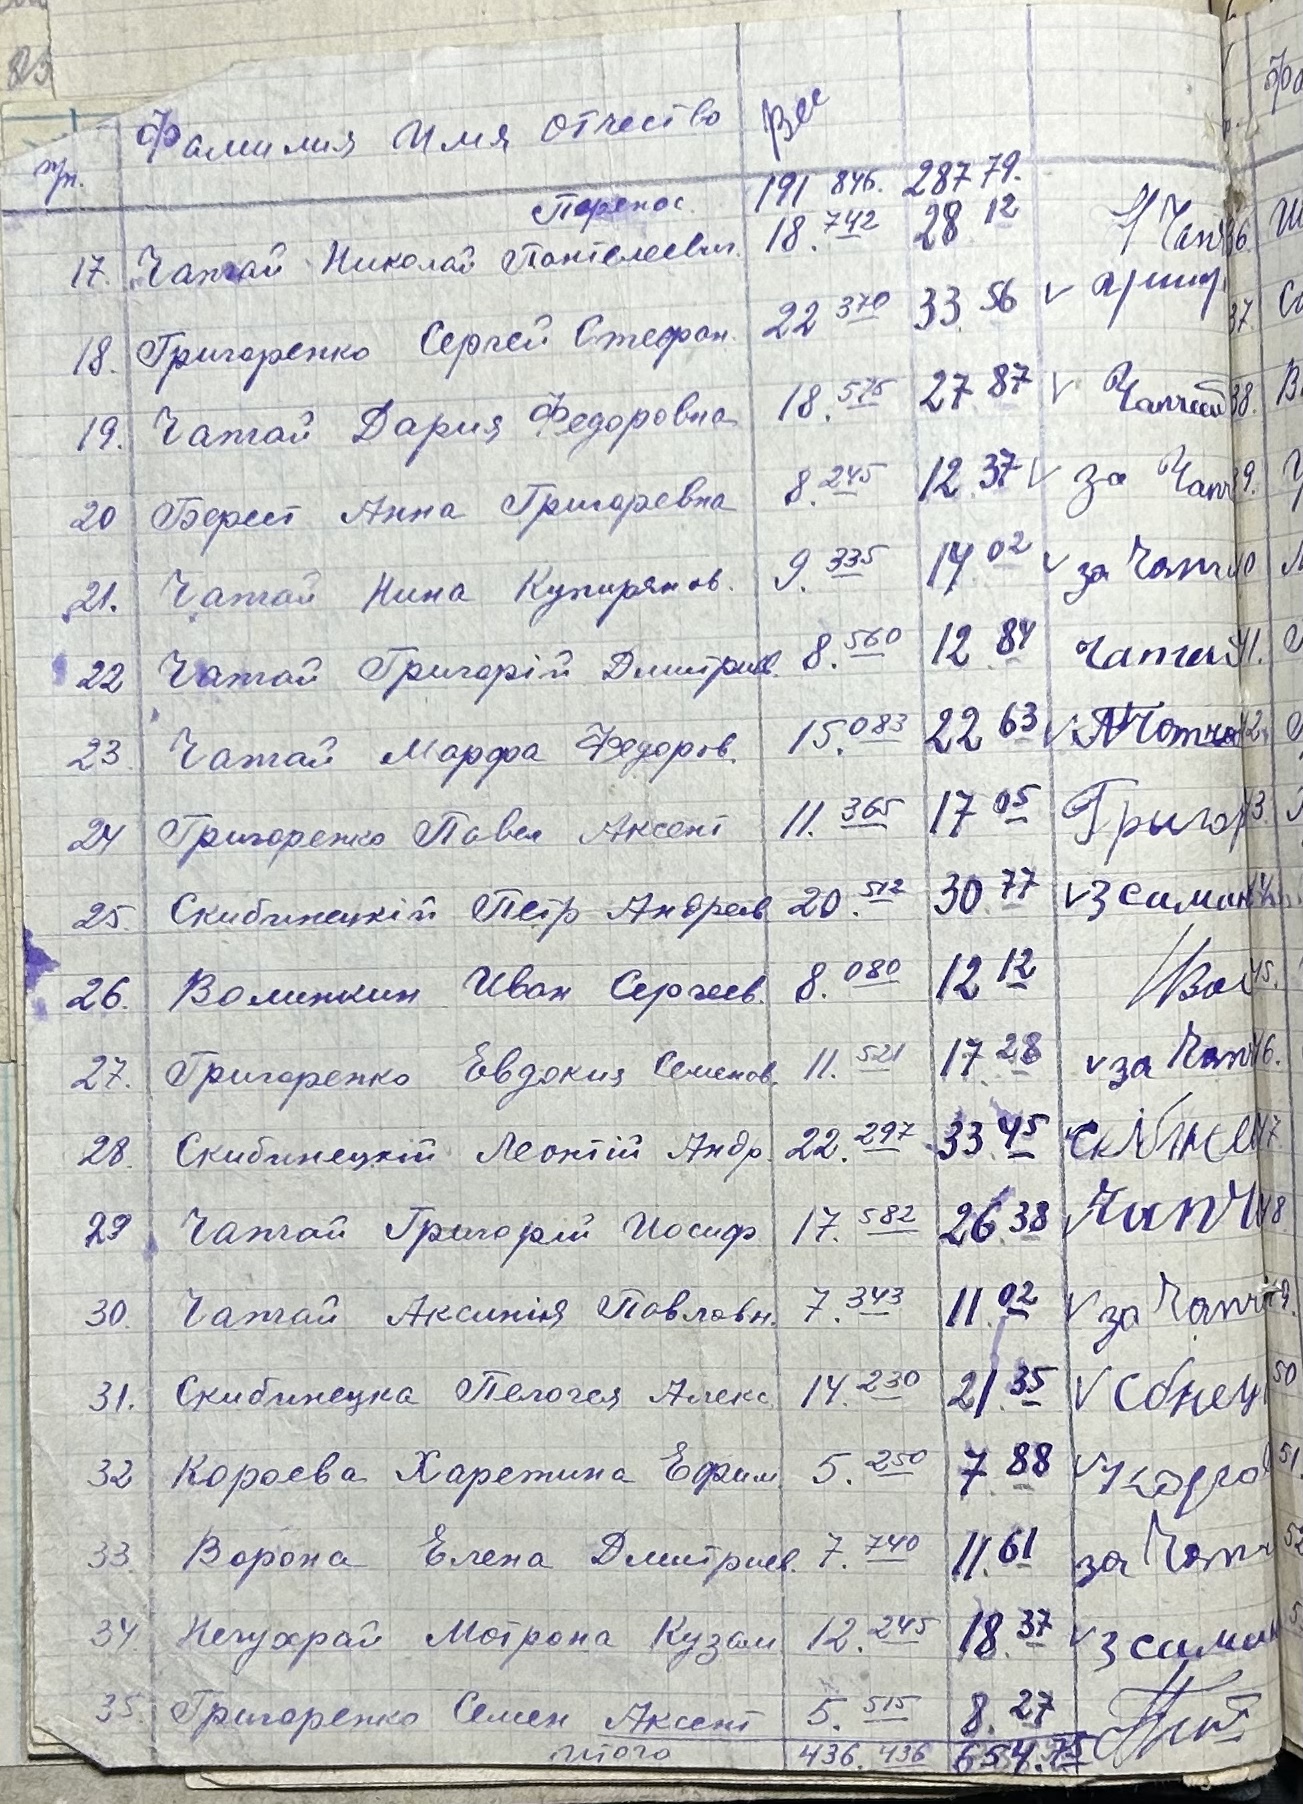 п/п. Фамилия Имя Отчество Вес
Перенос. 191 846. 287 79.
17. Чапчай Николай Пантелеевич. 18.742 28 12
18. Григоренко Сергей Стефан. 22 370 33.56 v
19. Чапчай Дария Федоровна 18.575 27 87 v Чапчай
20 Берест Анна Григоревна 8.245 12.37 v за Чапч
21. Чапчай Нина Куприянов. 9.335 14 02 v за Чапч
22 Чапчай Григорій Дмитриев. 8.560 12 84 Чапчай
23. Чапчай Марфа Федоров. 15.083 22 63 v
24 Григоренко Павел Аксент 11.365 17 05 Григор
25. Скибинецкій Петр Андреев 20.512 30.77 v
26. Волинкин Иван Сергеев. 8.080 12 12
27. Григоренко Евдокия Семенов. 11.521 17.28 v за Чапч
28. Скибинецкій Леонтій Андр. 22.297 33.45
29 Чапчай Григорій Иосиф 17.582 26.38 Чапч
30. Чапчай Аксинія Павловн. 7.343 11.02 v за Чапч
31. Скибинецка Пелогея Алекс 14.230 21.35 v
32 Короева Харетина Ефим 5.250 7.88 v
33. Ворона Елена Дмитриев. 7.740 11.61 за Чапч
34. Негухрай Мотрона Кузам 12.245 18.37 v
35. Григоренко Семен Аксент 5.515 8.27
итого 436.436 654.75